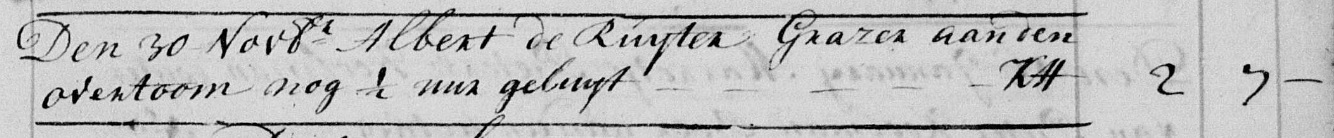 Den 30 Novbr Albert de Ruyter Grazer aan den
overtoom nog ½ uur geluyt — — — — — KH 2 7 —